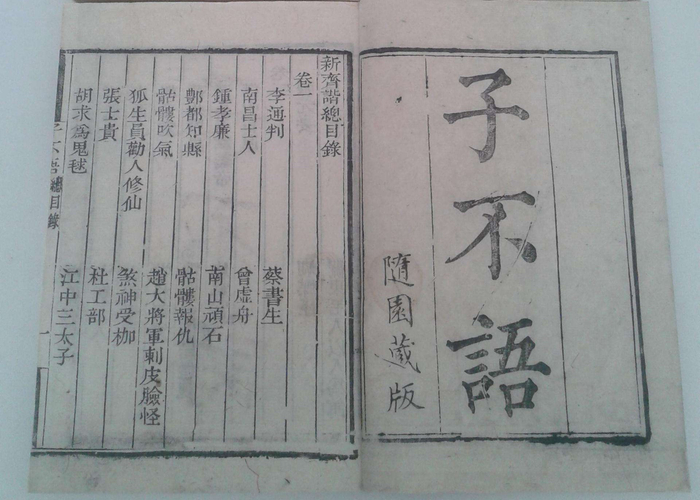 子不語
隨園藏版
新齊諧總目錄
卷一
李通判
蔡書生
南昌士人
曾虛舟
鍾孝廉
南山頑石
酆都知縣
骷髏報仇
骷髏吹氣
趙大將軍刺皮臉怪
狐生員勸人修仙
煞神受枷
張士貴
杜工部
胡求為鬼毬
江中三太子
子不語 總目錄
一